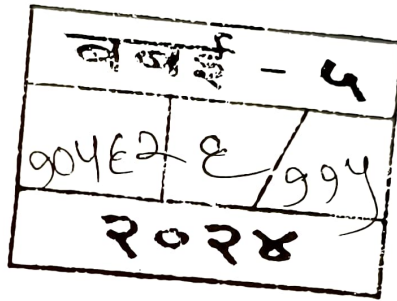 वसई - ५
१०५६२ ८/११५
२०२४